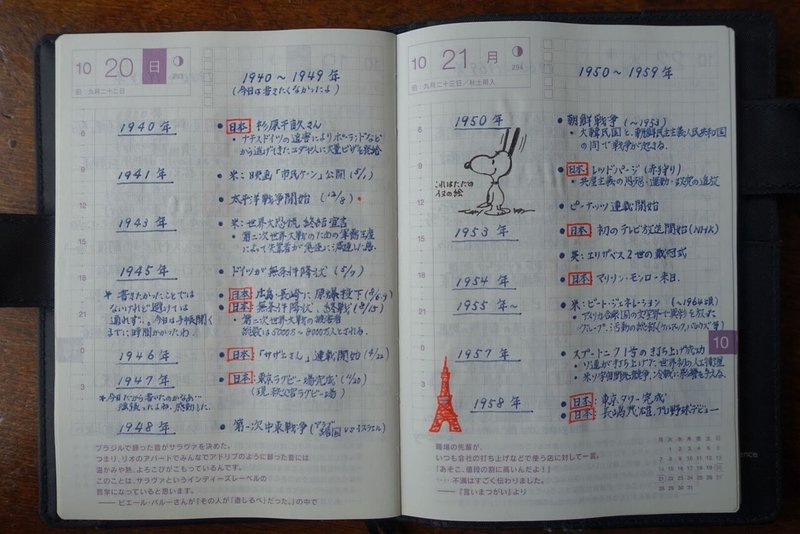 10 20 日
293
旧：九月二十二日
1940～1949年
(今日は書きたくなかったよ)
1940年
日本 杉原千畝さん
・ナチスドイツの迫害によりポーランドなど
から逃げてきたユダヤ人に大量ビザを発給
1941年
米：映画「市民ケーン」公開 (5/1)
太平洋戦争開始 (12/8)
1943年
米：世界大恐慌 終結宣言
・第二次世界大戦のための軍需生産
によって失業者が急速に減速した為。
1945年
ドイツが無条件降伏 (5/7)
＊書きたかったことでは
ないけれど避けては
通れず…。今日は手帳開く
までに時間かかったわ。
日本：広島・長崎に原爆投下 (8/6.9)
日本：無条件降伏、終戦 (8/15)
・第二次世界大戦の被害者
総数は5000万～8000万人とされる。
1946年
日本：「サザエさん」連載開始 (4/22)
1947年
日本：東京ラグビー場完成 (11/20)
(現 秩父宮ラグビー場)
＊今日だから書いたのかなぁ…
頑張ったよね、感動した。
1948年
第一次中東戦争 (アラブ諸国 vs イスラエル)
ブラジルで録った音がサラヴァを決めた。
つまり、リオのアパートでみんなでアドリブのように録った音には
温かみや熱、よろこびがこもっているんです。
このことは、サラヴァというインディーズレーベルの
哲学になっていると思います。
——ピエール・バルーさんが『その人が「道しるべ」だった。』の中で
10 21 月
294
旧：九月二十三日／秋土用入
1950～1959年
1950年
朝鮮戦争 (～1953)
・大韓民国と、朝鮮民主主義人民共和国
の間で戦争が起きる。
日本：レッドパージ (赤狩り)
・共産主義の思想・運動・政党の追放
これはただの
イヌの絵
ピーナッツ連載開始
1953年
日本：初のテレビ放送開始 (NHK)
英：エリザベス2世の戴冠式
1954年
日本：マリリン・モンロー来日.
1955年～
米：ビート・ジェネレーション (～1964頃)
・アメリカ合衆国の文学界で異彩を放った
グループ、活動の総称
1957年
スプートニク1号の打ち上げ成功
・ソ連が打ち上げた、世界初の人工衛星
・米ソ宇宙開発競争、冷戦に影響を与える。
10
1958年
日本：東京タワー完成
日本：長嶋茂雄、プロ野球デビュー
職場の先輩が、
いつも会社の打ち上げなどで使う店に対して一言。
「あそこ、値段の割に高いんだよ！」
‥‥不満はすごく伝わりました。
——『言いまつがい』より